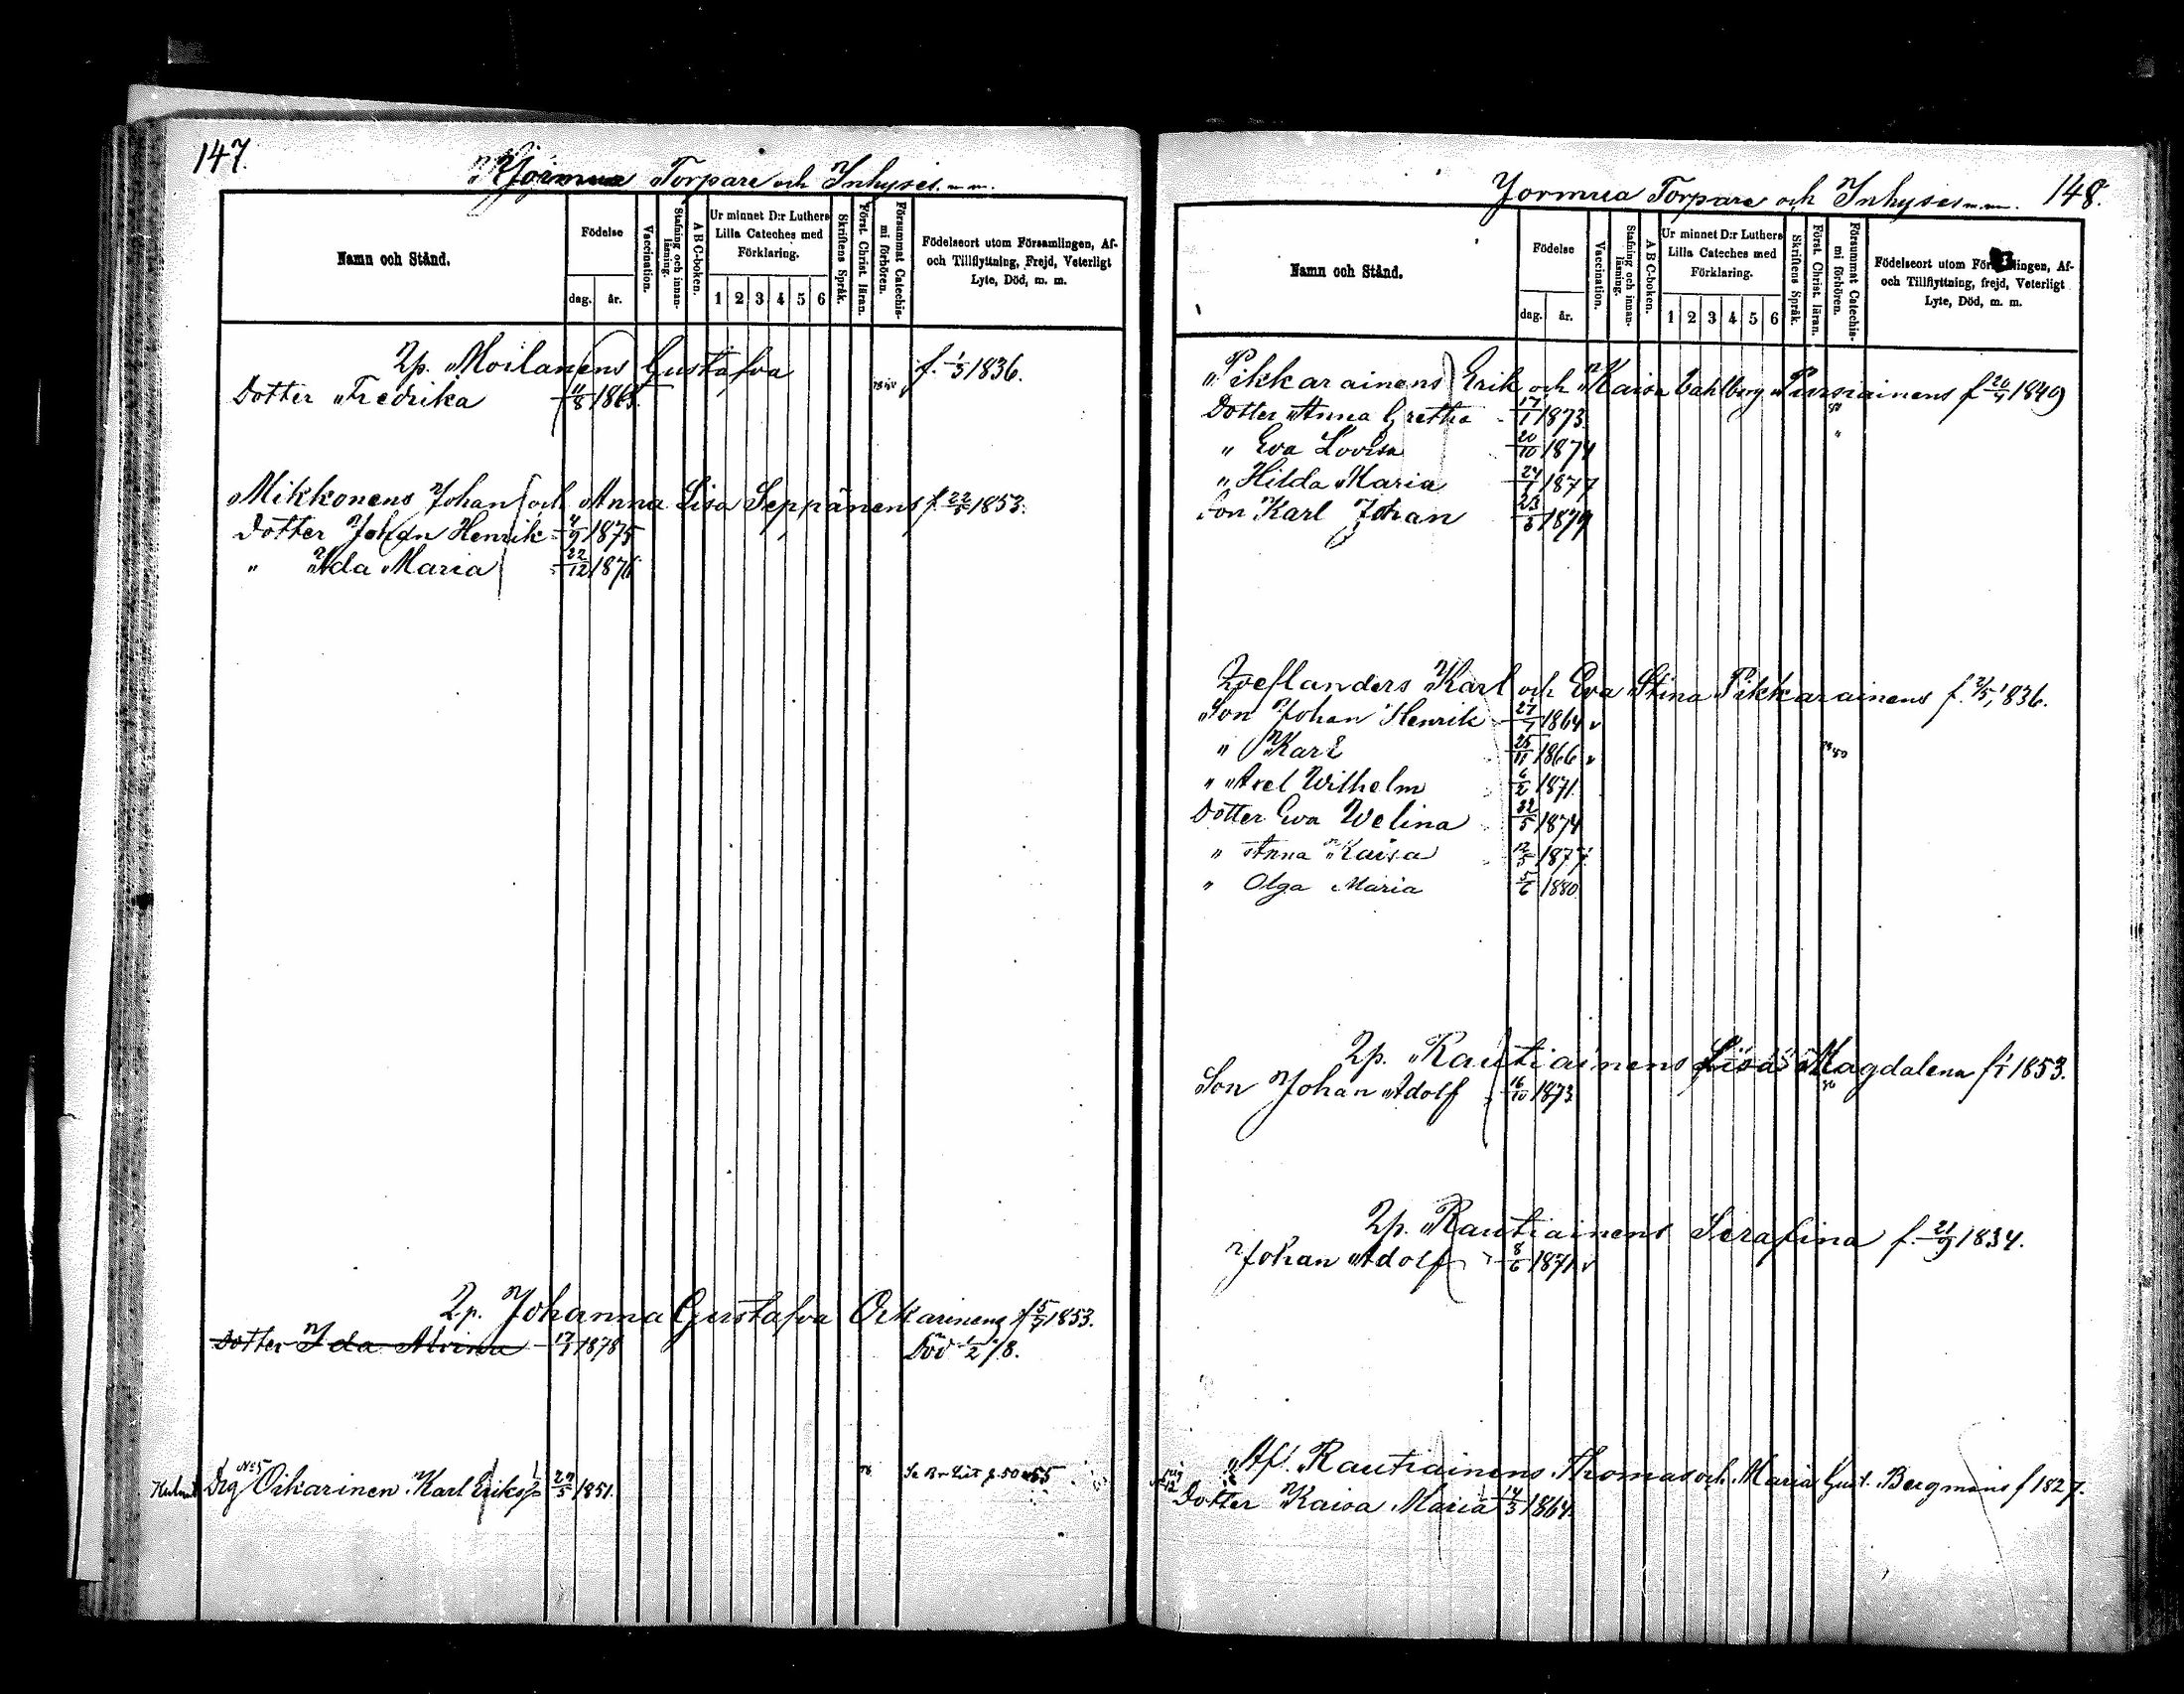 147.
Jormua Torpare och Inhyses m.m.
Namn och Stånd.
Födelse
dag. år.
Vaccination.
Stafning och innan-läsning.
A B C-boken.
Ur minnet D:r Luthers Lilla Cateches med Förklaring.
1 2 3 4 5 6
Skriftens Språk.
Först. Christ läran.
Försummat Catechis-mi förhören.
Födelseort utom Församlingen, Af- och Tillflyttning, Frejd, Veterligt Lyte, Död, m. m.
Qp. Moilanens Gustafva f. 1/3 1836.
Dotter Fredrika 11/8 1865.
Mikkonens Johan och Anna Lisa Seppänens f. 1853.
Dotter Johan Henrik 1875
" Ida Maria 22/12 1876
Qp. Johanna Gustafva Oikarinens f. 5/7 1853.
Dotter Ida Alvina 1878 Död 1/2 78.
Drg No 5 Oikarinen Karl Eriks 1851.
148.
Jormua Torpare och Inhyses m.m.
Namn och Stånd.
Födelse
dag. år.
Vaccination.
Stafning och innan-läsning.
A B C-boken.
Ur minnet D:r Luthers Lilla Cateches med Förklaring.
1 2 3 4 5 6
Skriftens Språk.
Först. Christ. läran.
Försummat Catechis-mi förhören.
Födelseort utom Församlingen, Af- och Tillflyttning, frejd, Veterligt Lyte, Död, m. m.
Pikkarainens Erik och Kaisa Cahlberg Pursiainens f 1840)
Dotter Anna Gretha 17/1 1873.
" Eva Lovisa 20/10 1874
" Hilda Maria 1877
Son Karl Johan 1879
Karl och Eva Stina Pikkarainens f. 2/5 1836.
Son Johan Henrik 1864
" Karl 1866
" Axel Wilhelm 1871.
Dotter Eva Welina 22/5 1874
" Anna Kaisa 12/5 1877.
" Olga Maria 5/6 1880.
Qp. Rautiainens Lisa Magdalena f. 1853.
Son Johan Adolf 16/10 1873
Qp. Rautiainens Serafina f. 21/9 1834.
Johan Adolf 8/6 1871
Af. Rautiainens Thomas och Maria Gust. Bergmans f 1827.
Dotter Kaisa Maria 14/3 1864.